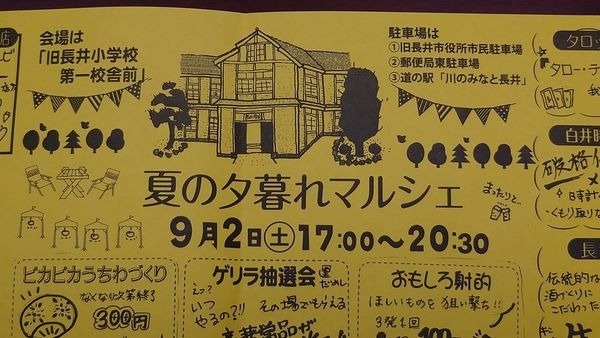 会場は
「旧長井小学校
第一校舎前」
駐車場は
①旧長井市役所市民駐車場
②郵便局東駐車場
③道の駅「川のみなと長井」
夏の夕暮れマルシェ
まったりと〜
9月2日(土)17:00〜20:30
ピカピカうちわづくり
なくなり次第終了
300円
ゲリラ抽選会
運だめし
えっ?
いつ
やるの?!
その場でもらえる
豪華賞品が
おもしろ射的
ほしいものを狙い撃ち!!
3発1回
100
タロッ
タロー・デ
白井時
破格
時計
くもり取りな
長
伝統的な
酒づくりに
こだわった